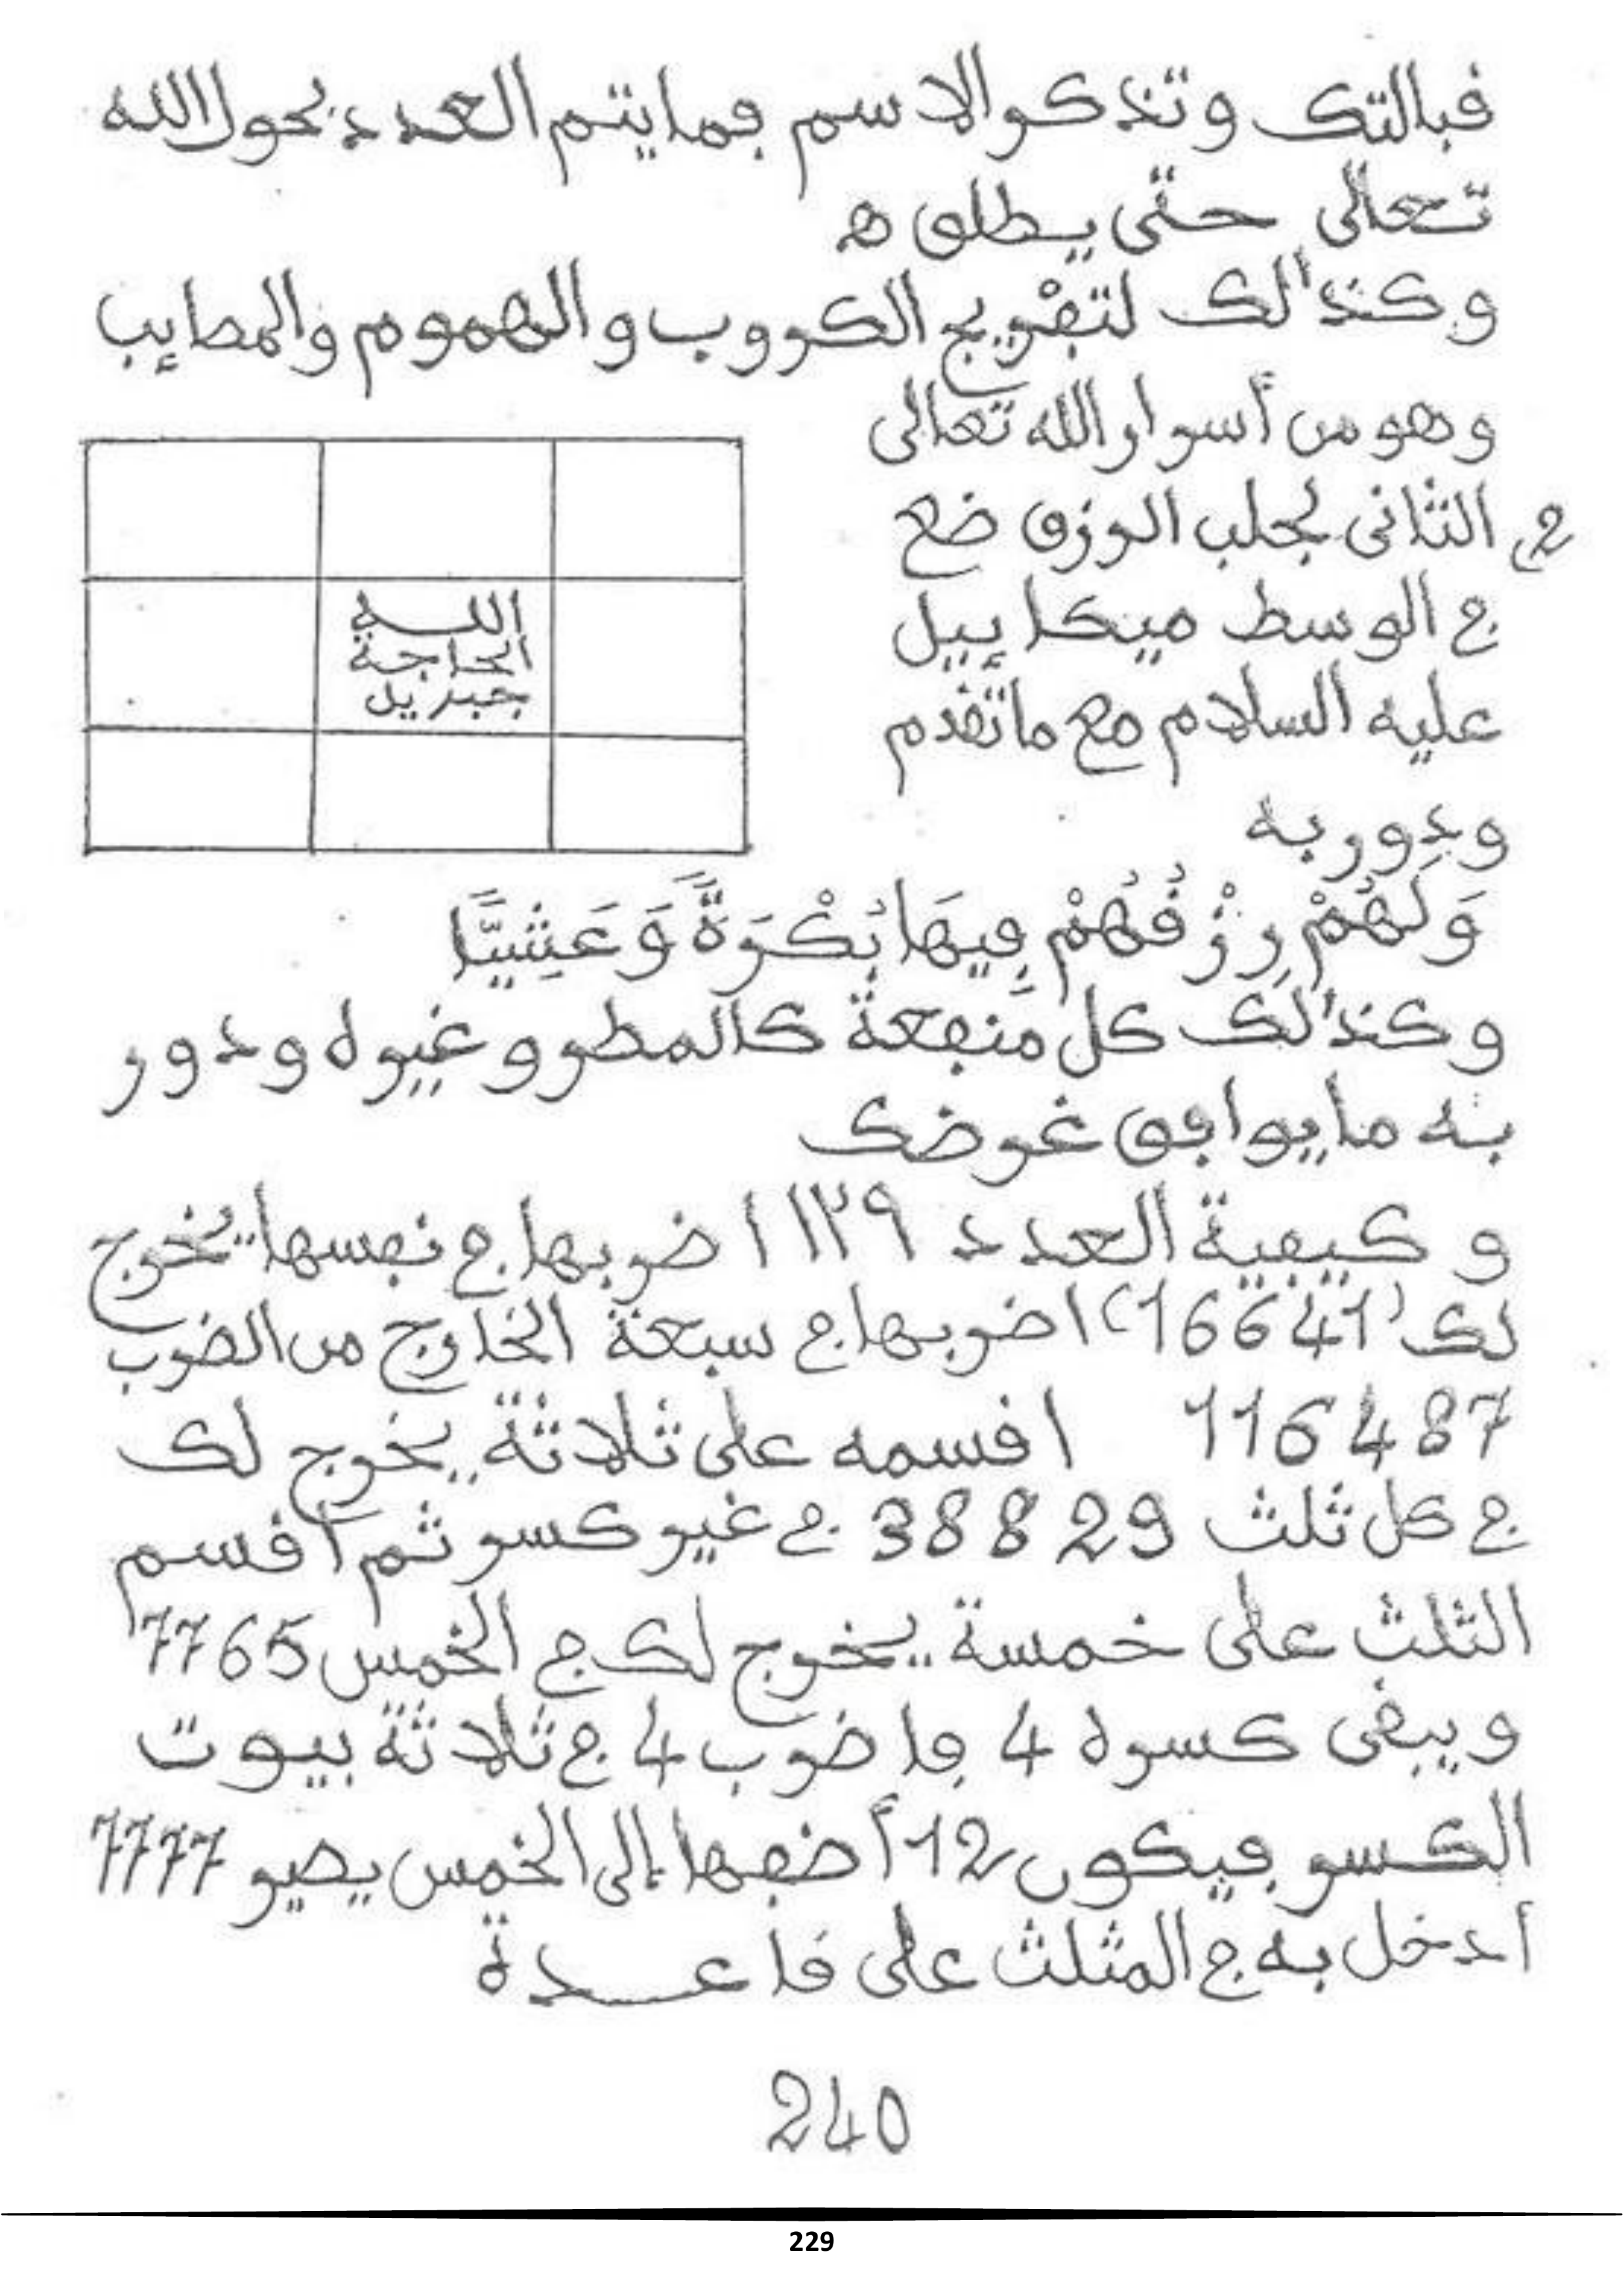 قبالتك وتذكر الاسم فما يتم العدد بحول الله
تعالى حتى يطلق ه
وكذالك لتفريج الكروب والهموم والمصايب
وهو من أسرار الله تعالى
2 الثاني لجلب الرزق ضع
في الوسط ميكاييل
عليه السلام مع ما تقدم
ودور به
الله
الحاجة
جبريل
وَلَهُمْ رِزْقُهُمْ فِيهَا بُكْرَةً وَعَشِيًّا
وكذالك كل منفعة كالمطر وغيره ودور
به ما يوافق غرضك
وكيفية العدد ١٢٩ اضربها في نفسها يخرج
لك (16641) اضربها في سبعة الخارج من الضرب
116487 اقسمه على ثلاثة يخرج لك
في كل ثلث 38829 في غير كسر ثم أقسم
الثلث على خمسة يخرج لك في الخمس 7765
ويبقى كسره 4 فاضرب 4 في ثلاثة بيوت
الكسر فيكون 12 أضفها إلى الخمس يصير 7777
أدخل به في المثلث على قاعدة
240
229